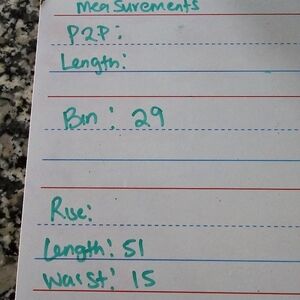 Measurements
P2P:
Length:
Bin: 29
Rise:
Length: 51
Waist: 15